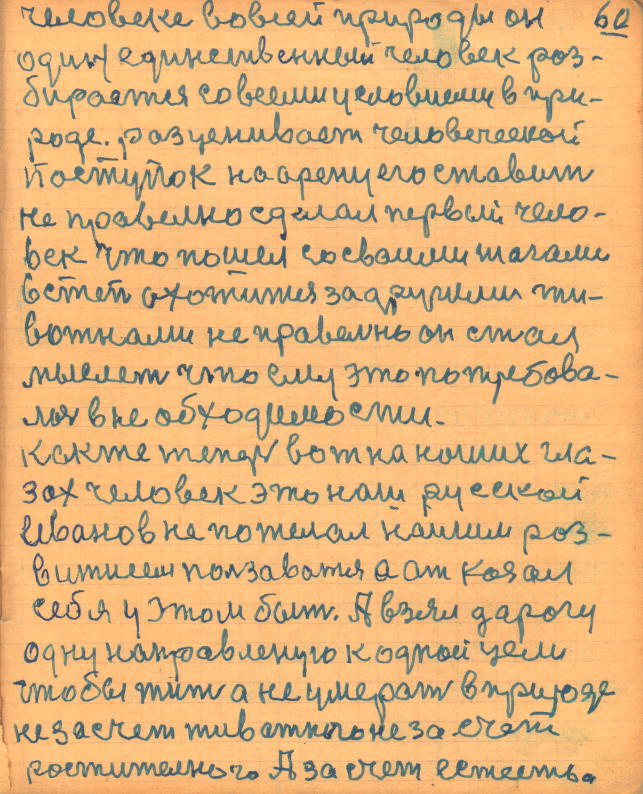 человеке вовсей природы он 60
один единственный человек роз-
бирается совсеми условиеми в при-
роде. разценивает человеческой
поступок наарену его ставит
не правелно сделал первый чело-
век что пошел сосвоими шагами
встеп охотится за другими жи-
вотнами не правелно он стал
мыслет что ему это потребова-
лся в не обходимости.
какже тепер вот на ноших гла-
зах человек это наш русской
Иванов не пожелал нашим роз-
витием ползаватся а от козал
себя у этом быт. А взял дарогу
одну направленую к одной цели
чтобы жит а не умерат в природе
не за счет живатного не за счет
ростителного А за счет естества